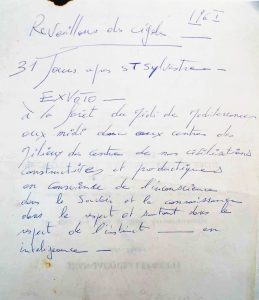 Reveillons des cigales
31 Jours après St Sylvestre —
EXVOTO —
à la Forêt du Midi de Mediterranee
aux midi dans aux centres des
Milieux des centres de nos civilisations
constructives et productiques
en conscience de l'inconscience
dans le Soucis et la connaissance
dans le respect et surtout dans le
respect de l'instinct — en
intelligence —